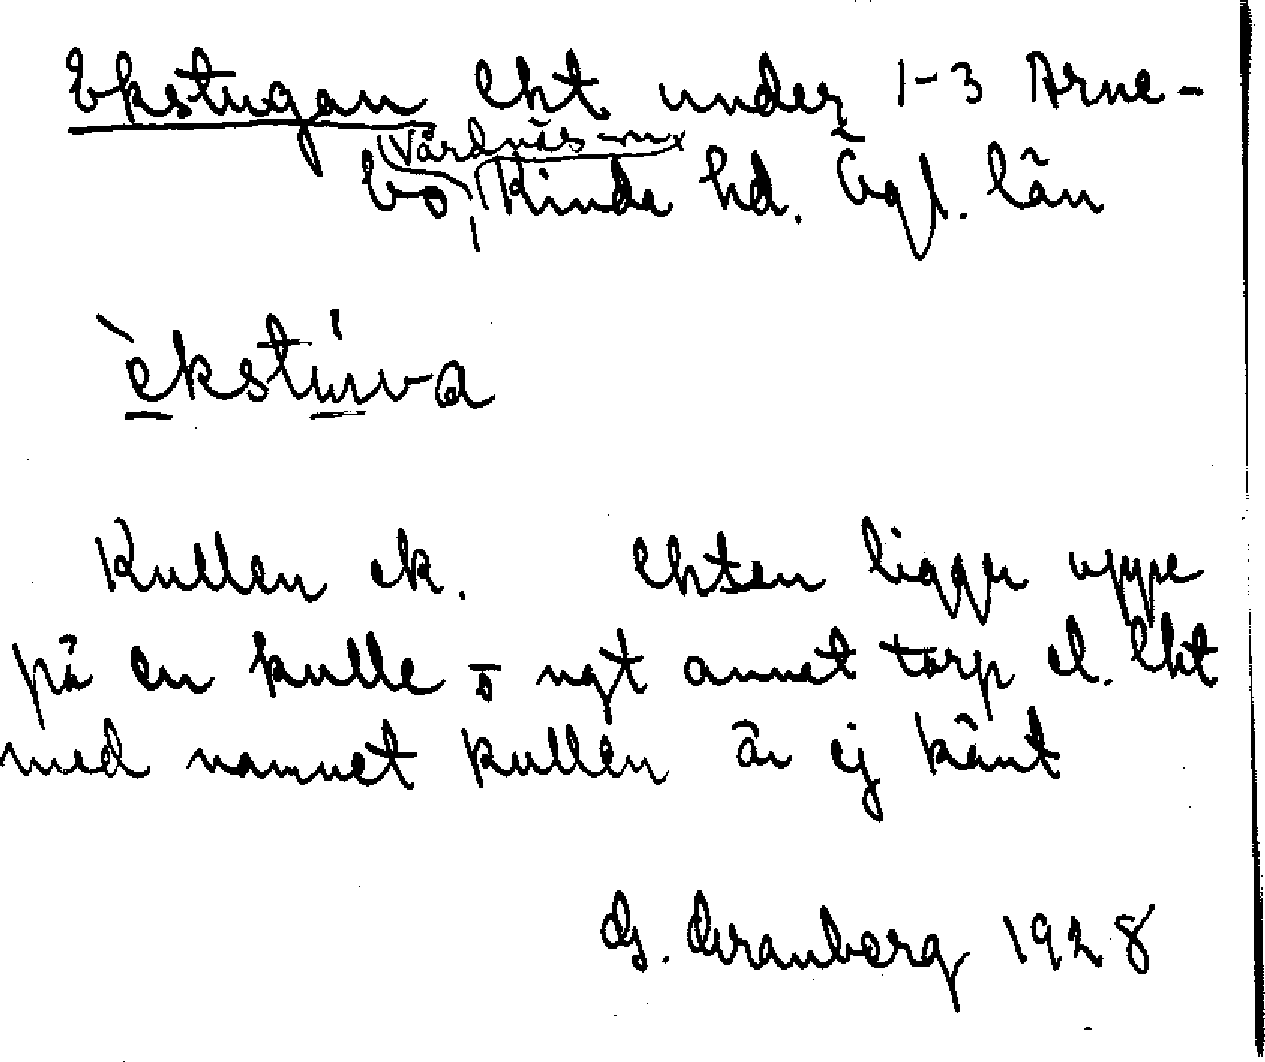 Ekstugan lht under 1-3 Arne-
Vårdnäs sn
bo, Kinda hd. Ögl. län
èkstúva
Kullen ek. lhten ligger uppe
på en kulle o ngt annet torp el. lht
med namnet Kullen är ej känt
G. Granberg 1928